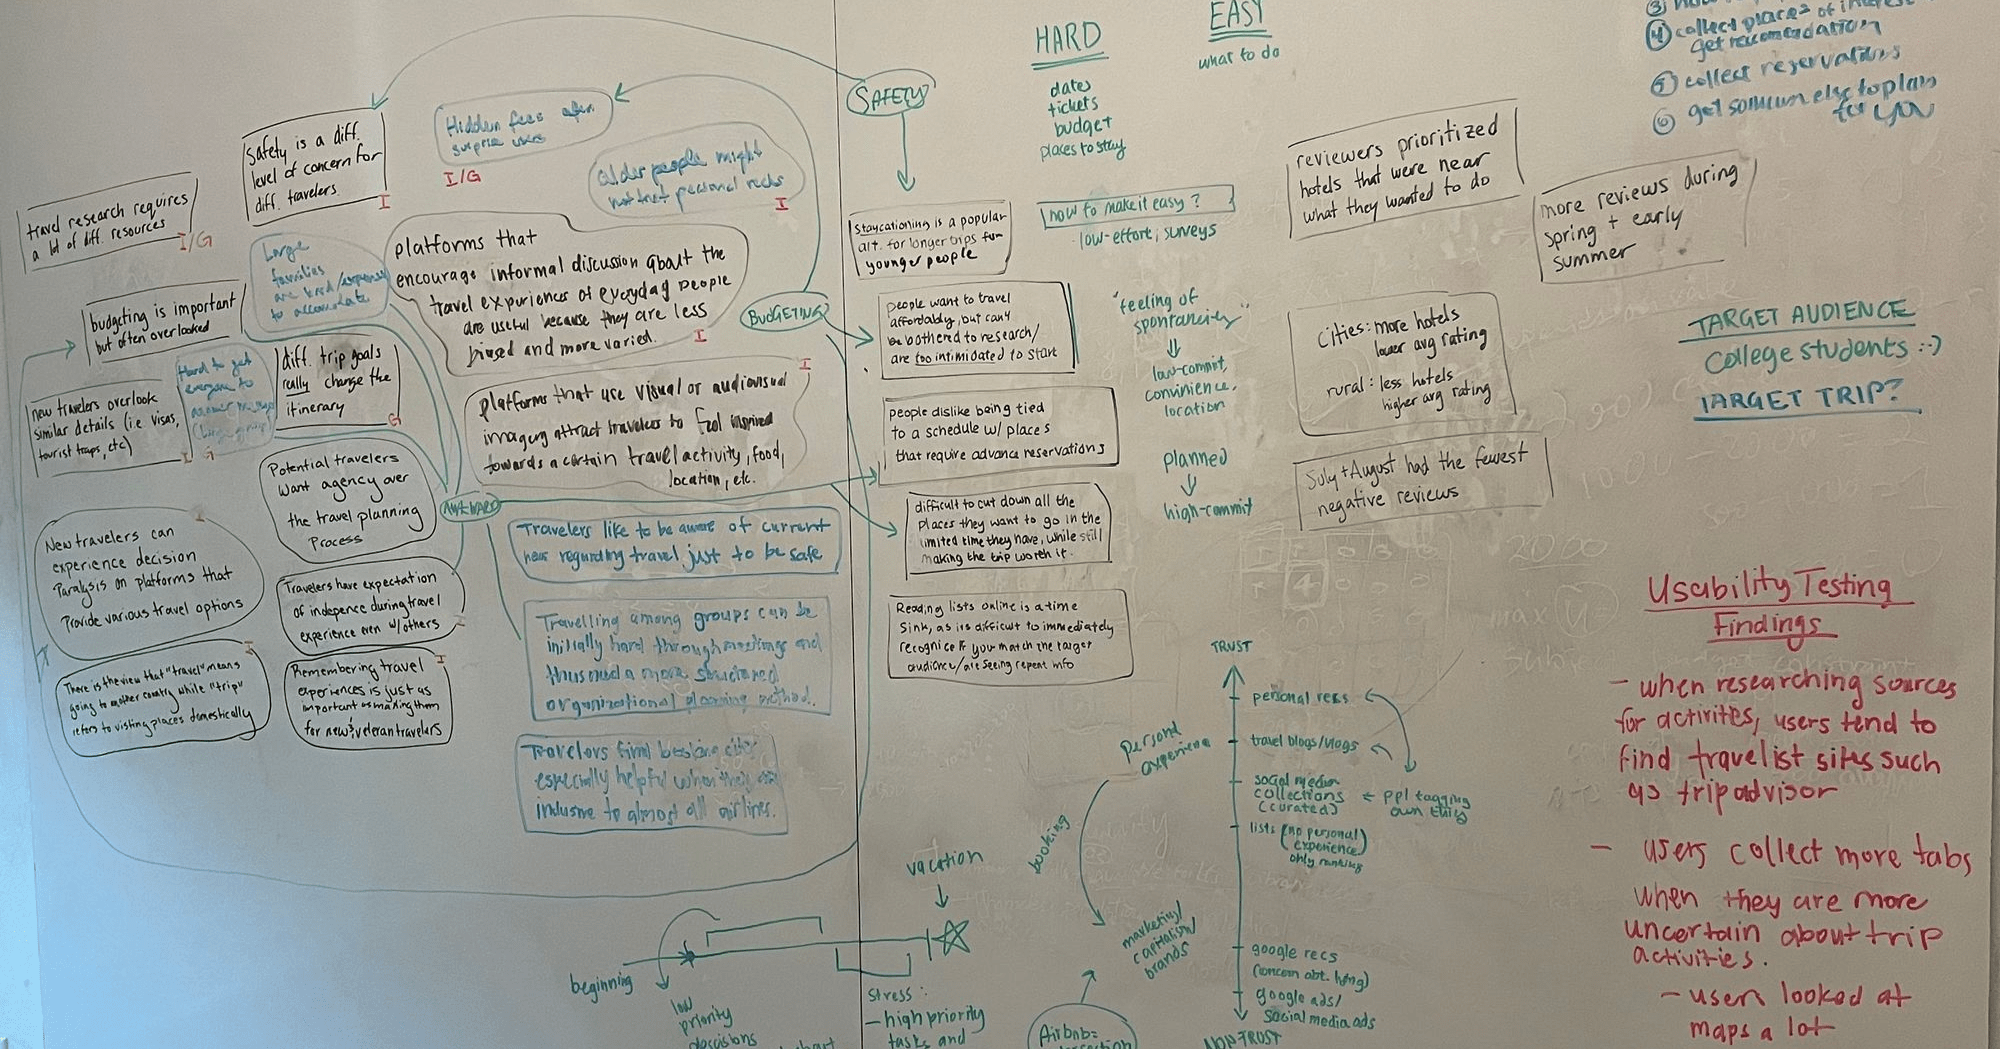 Safety is a diff.
level of concern for
diff. travelers.
I
Hidden fees often
surprise users
I/G
older people might
not trust personal recks
I
travel research requires
a lot of diff. resources
I/G
Large
families
are hard/expensive
to accomodate
platforms that
encourage informal discussion about the
travel experiences of everyday people
are useful because they are less
biased and more varied.
I
budgeting is important
but often overlooked
Hard to get
everyone to
answer
(large group)
G
diff. trip goals
really change the
itinerary
G
new travelers overlook
similar details (i.e visas,
tourist traps, etc)
I
platforms that use visual or audiovisual
imagery attract travelers to feel inspired
towards a certain travel activity, food,
location, etc.
I
Potential travelers
want agency over
the travel planning
process
AWKWARD
New travelers can
experience decision
Paralysis on platforms that
Provide various travel options
Travelers have expectation
of indepence during travel
experience even w/others
There is the view that "travel" means
going to another country while "trip"
refers to visting places domestically
I
Remembering travel
experiences is just as
important as making them
for new & veteran travelers
I
Travelers like to be aware of current
news regarding travel just to be safe
Travelling among groups can be
initially hard through meetings and
thus need a more structured
organizational planning method.
Travelers find booking sites
especially helpful when they are
inclusive to almost all airlines.
SAFETY
BUDGETING
Staycationing is a popular
alt. for longer trips for
younger people
people want to travel
affordably, but can't
be bothered to research/
are too intimidated to start
people dislike being tied
to a schedule w/ places
that require advance reservations
difficult to cut down all the
places they want to go in the
limited time they have, while still
making the trip worth it.
Reading lists online is a time
sink, as its difficult to immediately
recognice if you match the target
audience/are seeing repeat info
HARD
dates
tickets
budget
places to stay
EASY
what to do
how to make it easy?
low-effort, surveys
"feeling of
spontaneity"
low-commit,
convinience,
location
planned
high-commit
reviewers prioritized
hotels that were near
what they wanted to do
more reviews during
spring + early
summer
cities: more hotels
lower avg rating
rural: less hotels
higher avg rating
July + August had the fewest
negative reviews
④ collect places of interest
get recomendation
⑤ collect reservations
⑥ get someone else to plan
for you
TARGET AUDIENCE
college students :-)
TARGET TRIP?
Usability Testing
Findings
- when researching sources
for activites, users tend to
find travelist sites such
as tripadvisor
- users collect more tabs
when they are more
uncertain about trip
activities.
- users looked at
maps a lot
TRUST
personal recs
travel blogs/vlogs
social media
collections
(curated)
← ppl tagging
own thing
lists (no personal
experience,
only ranking)
google recs
google ads/
social media ads
NON-TRUST
personal
experience
booking
marketing/
capitalism/
brands
Airbnb=
vacation
beginning
low
priority
decisions
stress:
- high priority
tasks and